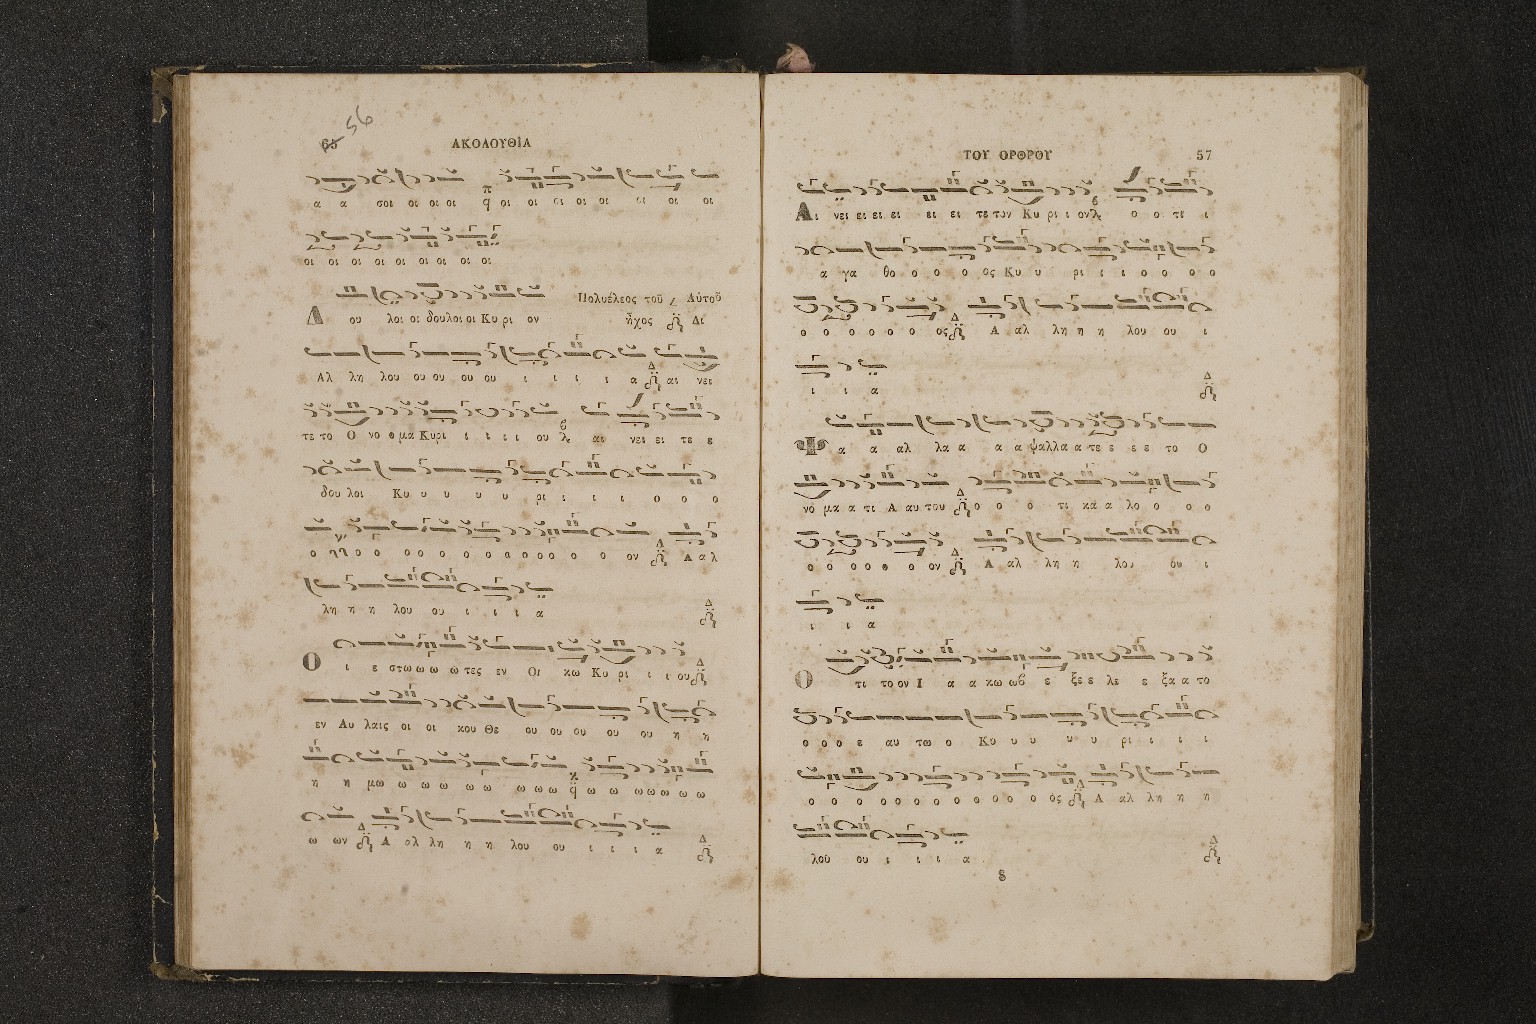 56
65 ΑΚΟΛΟΥΘΙΑ
α α σοι οι οι οι π q οι οι οι οι οι οι οι οι
οι οι οι οι οι οι οι οι οι
Πολυέλεος τοῦ Αὐτοῦ
Δ ου λοι οι δουλοι οι Κυ ρι ον ἦχος Δι
Αλ λη λου ου ου ου ου ι ι ι ι ι α Δ αι νει
τε το Ο νο ο μα Κυρι ι ι ι ι ου αι νει ει τε ε
δου λοι Κυ υ υ υ υ ρι ι ι ι ο ο ο
ο ο ο ο ο ο ο ο ο ο ο ο ο ον Δ Α α λ
λη η η λου ου ι ι ι α Δ
Ο ι ε στω ω ω ω τες εν Οι κω Κυ ρι ι ι ου Δ
εν Αυ λαις οι οι κου Θε ου ου ου ου ου η η
η η μω ω ω ω ω ω ω ω ω q ω ω ω ω ω ω ω
ω ων Δ Α αλ λη η η λου ου ι ι ι α Δ
ΤΟΥ ΟΡΘΡΟΥ 57
Αι νει ει ει ει ει ει τε τον Κυ ρι ι ον ο ο τι ι
α γα θο ο ο ο ος Κυ υ ρι ι ι ο ο ο ο
ο ο ο ο ο ο ος Δ Α αλ λη η η λου ου ι
ι ι α Δ
Ψ α α αλ λα α α α ψαλλα α τε ε ε ε το Ο
νο μα α τι Α αυ του Δ ο ο ο τι κα α λο ο ο ο
ο ο ο ο ο ο ον Δ Α αλ λη η λου ου ι
ι ι α
Ο τι το ον Ι α α κω ωβ ε ξε ε λε ε ξα α το
ο ο ο ε αυ τω ο Κυ υ υ υ υ ρι ι ι ι
ο ο ο ο ο ο ο ο ο ο ο ο ος Δ Α αλ λη η η
λου ου ι ι ι α Δ
8